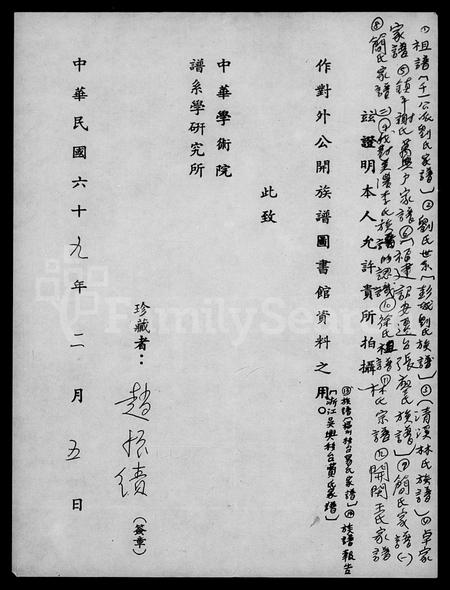 ①祖譜〔千一公派劉氏家譜〕②劉氏世系〔彭城劉氏族譜〕③〔清溪林氏族譜〕④卓家
家譜⑤鎮平謝氏萬興户家譜⑥〔福建詔安遷台張廖氏族譜〕⑦簡氏家譜(一)
⑧簡氏家譜(二)⑨我對李氏族譜的認識⑩徐氏祖譜⑪林氏宗譜⑫開閩王氏家譜
茲證明本人允許貴所拍攝
⑬族譜〔福州社台高氏家譜〕⑭族譜報告
〔浙江吳興社台賈氏家譜〕
作對外公開族譜圖書館資料之用。
此致
中華學術院
譜系學研究所
珍藏者：趙振績（簽章）
中華民國六十九年二月五日
FamilySearch